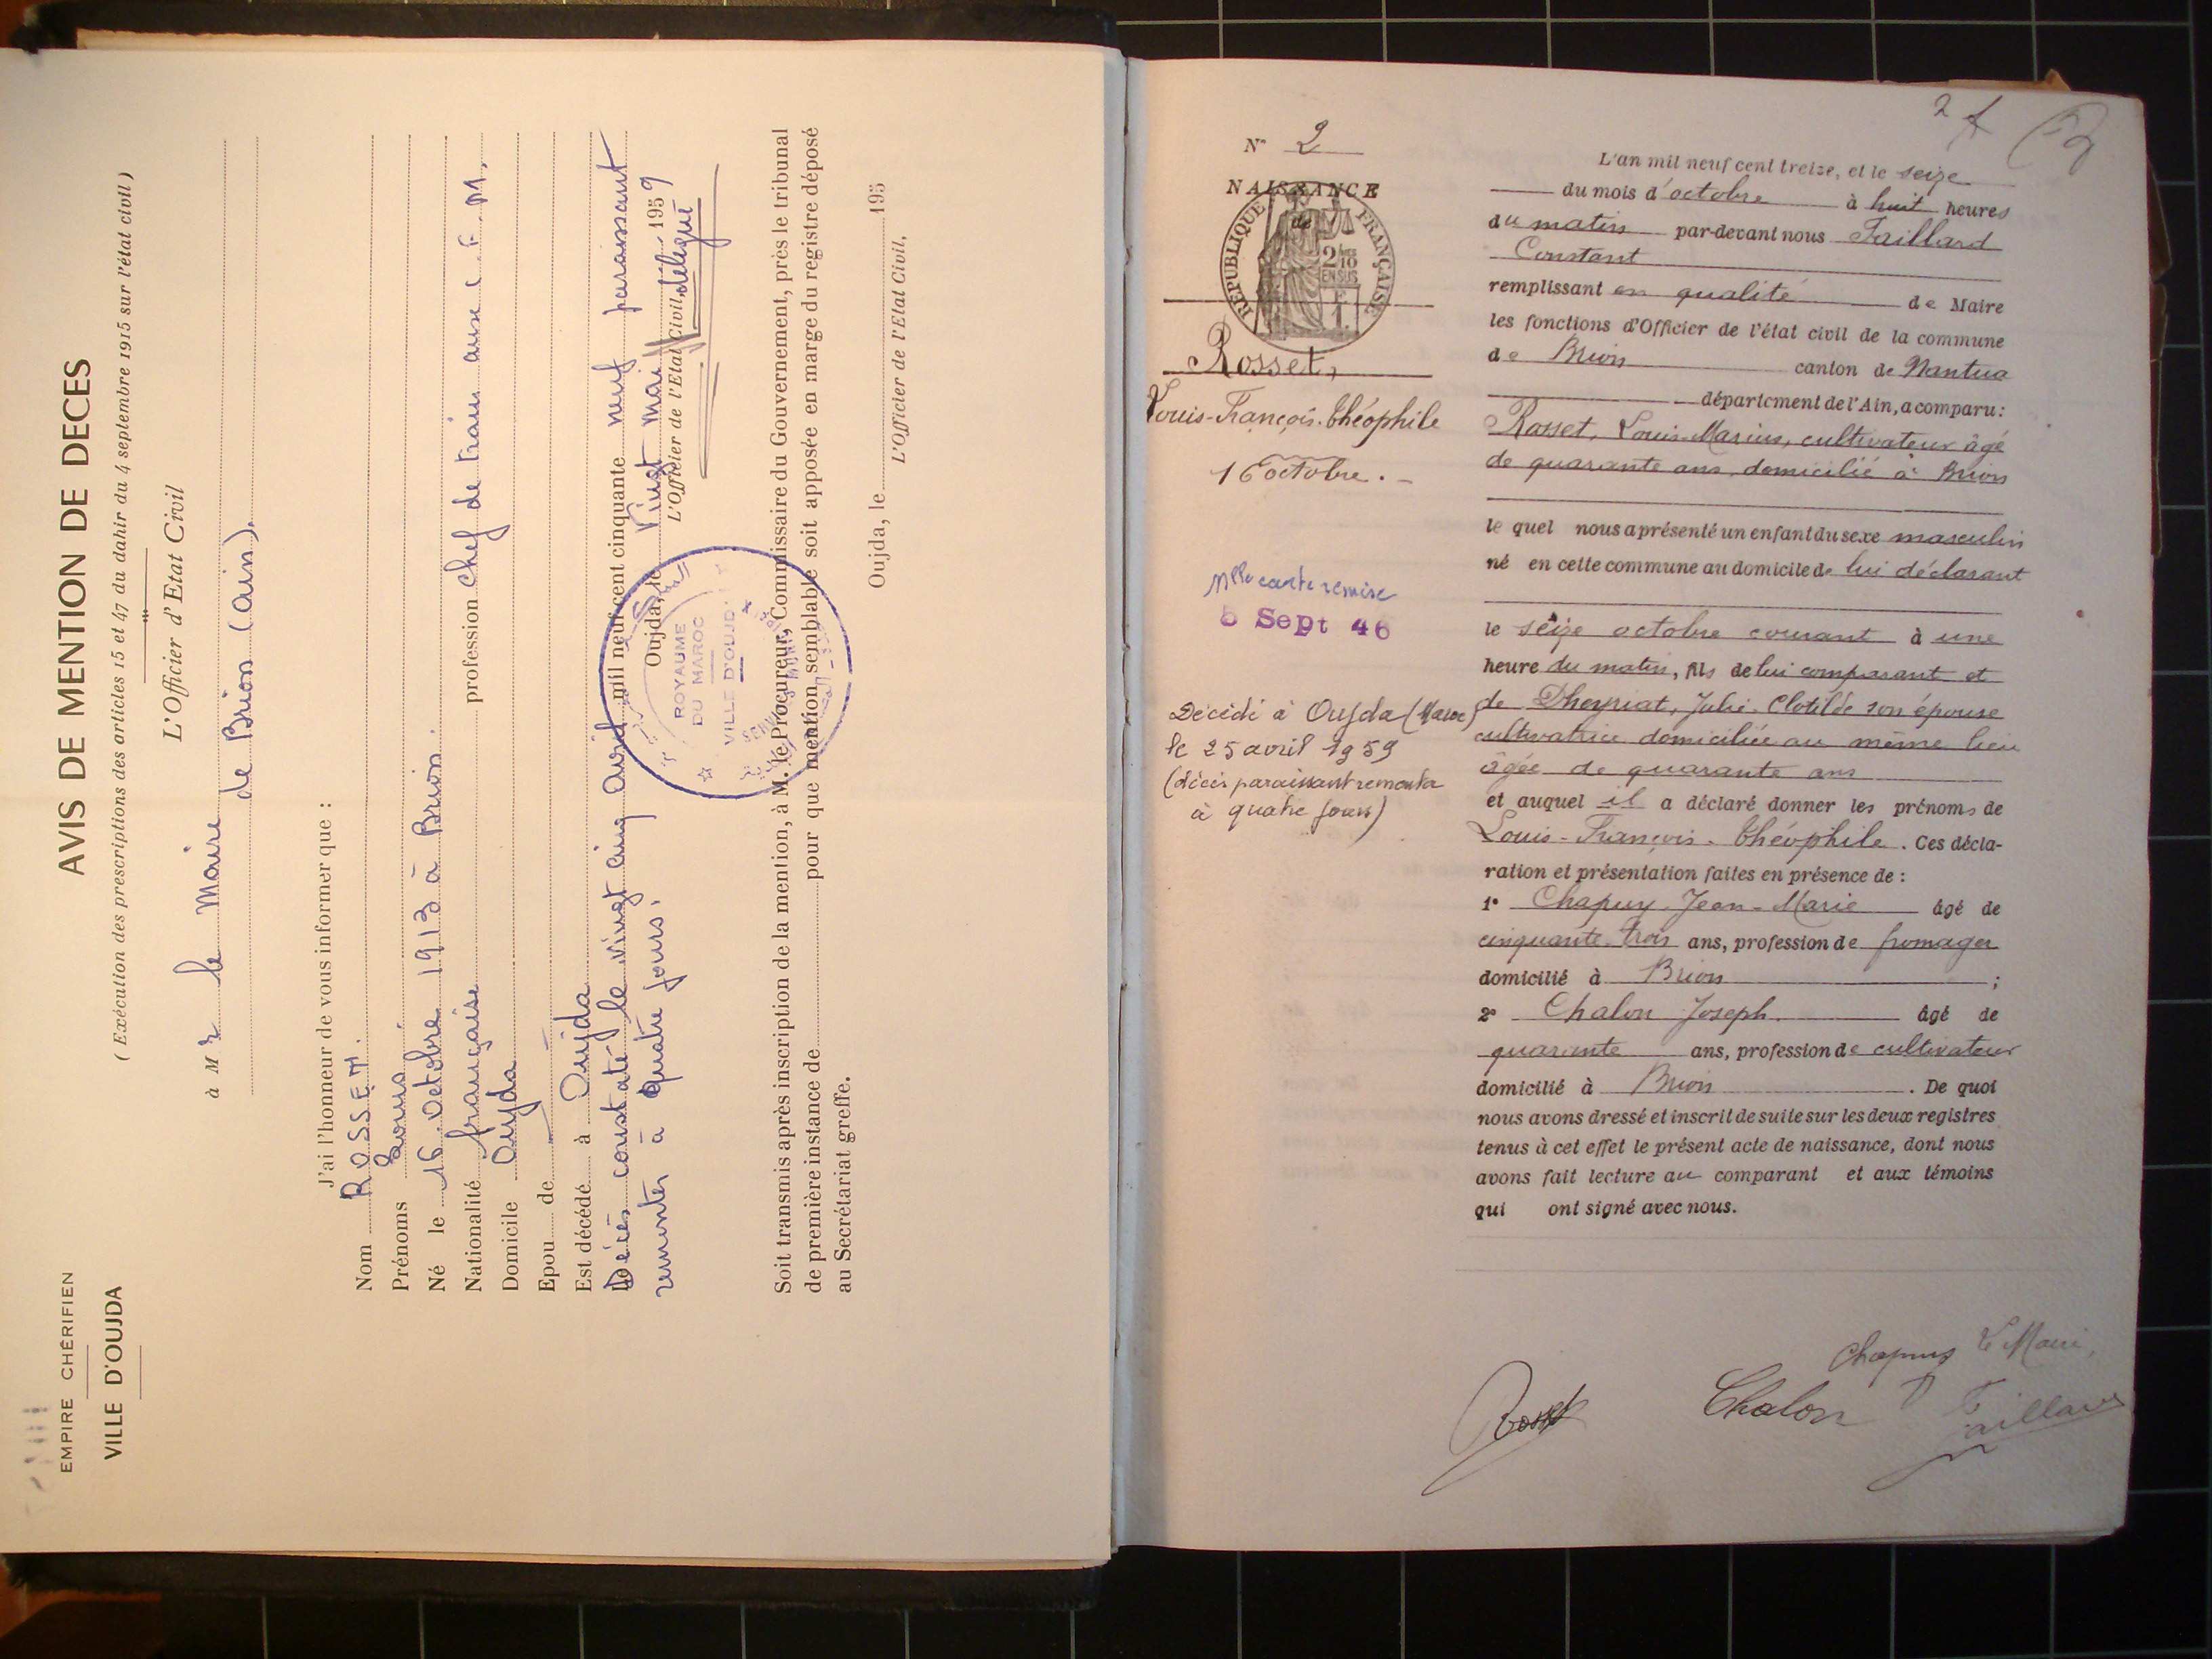 EMPIRE CHÉRIFIEN
VILLE D'OUJDA
AVIS DE MENTION DE DECES
( Exécution des prescriptions des articles 15 et 47 du dahir du 4 septembre 1915 sur l'état civil )
L'Officier d'Etat Civil
à Mr le Maire
de Brion (Ain).
J'ai l'honneur de vous informer que :
Nom ROSSET.
Prénoms Louis.
Né le 16 Octobre 1913 à Brion.
Nationalité française profession Chef de train aux C.F.M.
Domicile Oujda
Epou de
Est décédé à Oujda
Décès constaté le vingt cinq avril mil neuf cent cinquante neuf paraissant
remonter à quatre jours.
Oujda, le vingt mai 1959
L'Officier de l'Etat Civil, délégué
ROYAUME
DU MAROC
VILLE D'OUJDA
Soit transmis après inscription de la mention, à M. le Procureur, Commissaire du Gouvernement, près le tribunal
de première instance de pour que mention semblable soit apposée en marge du registre déposé
au Secrétariat greffe.
Oujda, le 195
L'Officier de l'Etat Civil,
2
N° 2
NAISSANCE
de
REPUBLIQUE FRANÇAISE
2/10
EN SUS
Rosset,
Louis-François-Théophile
16 octobre.-
Nlle carte remise
5 Sept 46
Décédé à Oujda (Maroc)
le 25 avril 1959
(décès paraissant remonter
à quatre jours)
L'an mil neuf cent treize, et le seize
du mois d'octobre à huit heures
du matin par-devant nous Taillard
Constant
remplissant en qualité de Maire
les fonctions d'Officier de l'état civil de la commune
de Brion canton de Nantua
département de l'Ain, a comparu :
Rosset, Louis-Marius, cultivateur âgé
de quarante ans, domicilié à Brion
le quel nous a présenté un enfant du sexe masculin
né en cette commune au domicile de lui déclarant
le seize octobre courant à une
heure du matin, fils de lui comparant et
de Dheyriat, Julie-Clotilde son épouse
cultivatrice domiciliée au même lieu
âgée de quarante ans
et auquel il a déclaré donner les prénoms de
Louis-François-Théophile. Ces décla-
ration et présentation faites en présence de :
1° Chapuy Jean-Marie âgé de
cinquante-trois ans, profession de fromager
domicilié à Brion ;
2° Chalon Joseph. âgé de
quarante ans, profession de cultivateur
domicilié à Brion. De quoi
nous avons dressé et inscrit de suite sur les deux registres
tenus à cet effet le présent acte de naissance, dont nous
avons fait lecture au comparant et aux témoins
qui ont signé avec nous.
Chapuy Le Maire,
Rosset Chalon Taillard